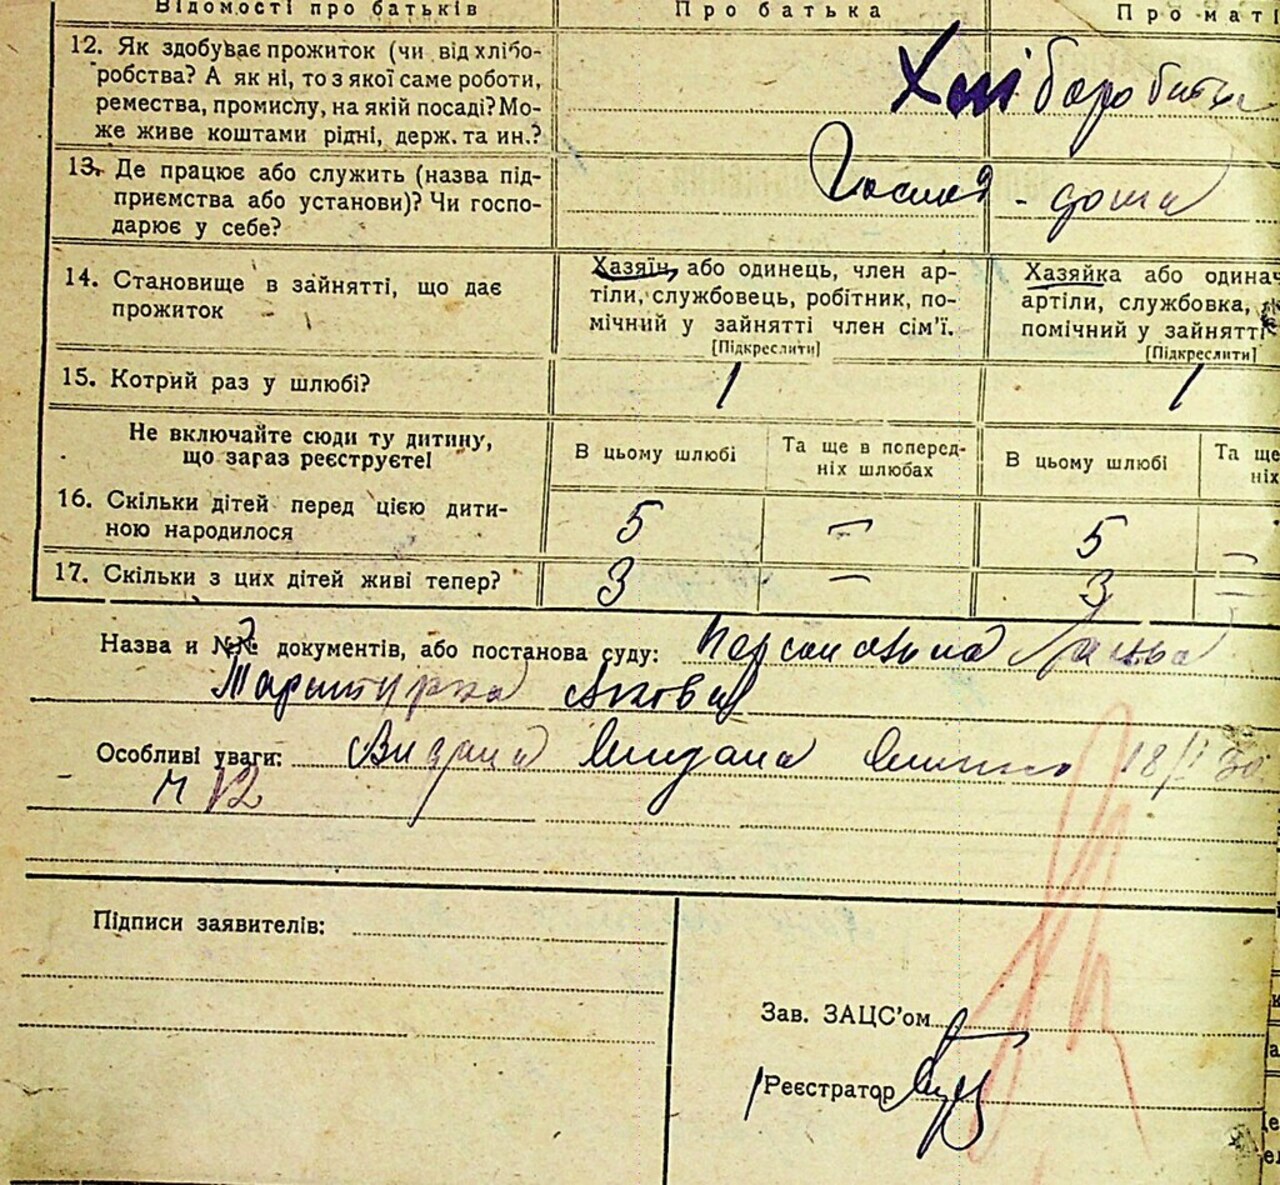 Відомості про батьків Про батька Про маті
12. Як здобуває прожиток (чи від хлібо-
робства? А як ні, то з якої саме роботи,
ремества, промислу, на якій посаді? Мо-
же живе коштами рідні, держ. та ин.?
13. Де працює або служить (назва під-
приємства або установи)? Чи госпо-
дарює у себе?
дома
14. Становище в зайнятті, що дає
прожиток
Хазяїн, або одинець, член ар-
тіли, службовець, робітник, по-
мічний у зайнятті член сім’ї.
[Підкреслити]
Хазяйка або одинач
артіли, службовка,
помічний у зайнятті
[Підкреслити]
15. Котрий раз у шлюбі? 1 1
Не включайте сюди ту дитину,
що зараз реєструєте!
В цьому шлюбі
Та ще в поперед-
ніх шлюбах
В цьому шлюбі
Та ще
ніх
16. Скільки дітей перед цією дити-
ною народилося
5 – 5 –
17. Скільки з цих дітей живі тепер? 3 – 3 –
Назва и №№ документів, або постанова суду:
Особливі уваги: 18/I 30
N 12
Підписи заявителів:
Зав. ЗАЦС’ом
Реєстратор